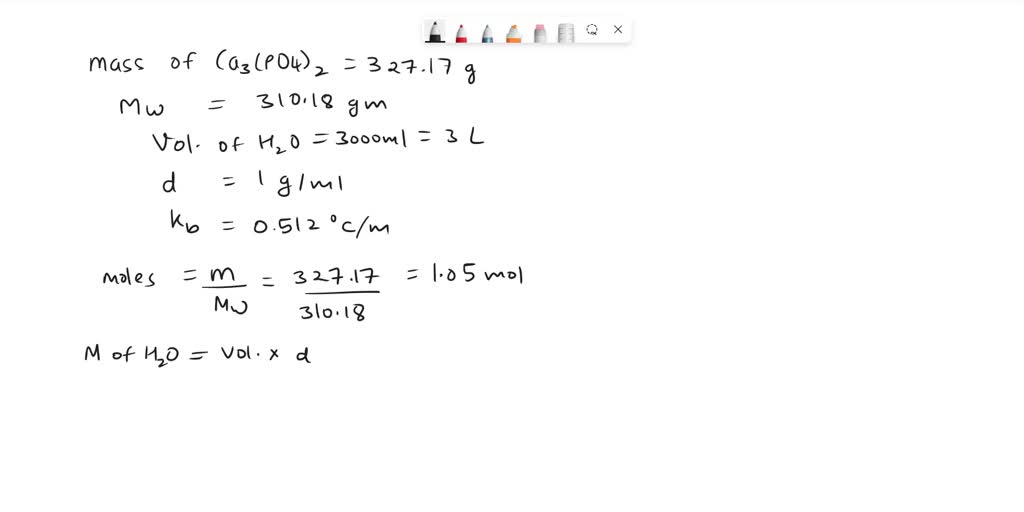 mass of Ca3(PO4)2 = 327.17 g
Mw = 310.18 gm
Vol. of H2O = 3000ml = 3 L
d = 1 g/ml
kb = 0.512 °c/m
moles = m/Mw = 327.17/310.18 = 1.05 mol
M of H2O = Vol. x d